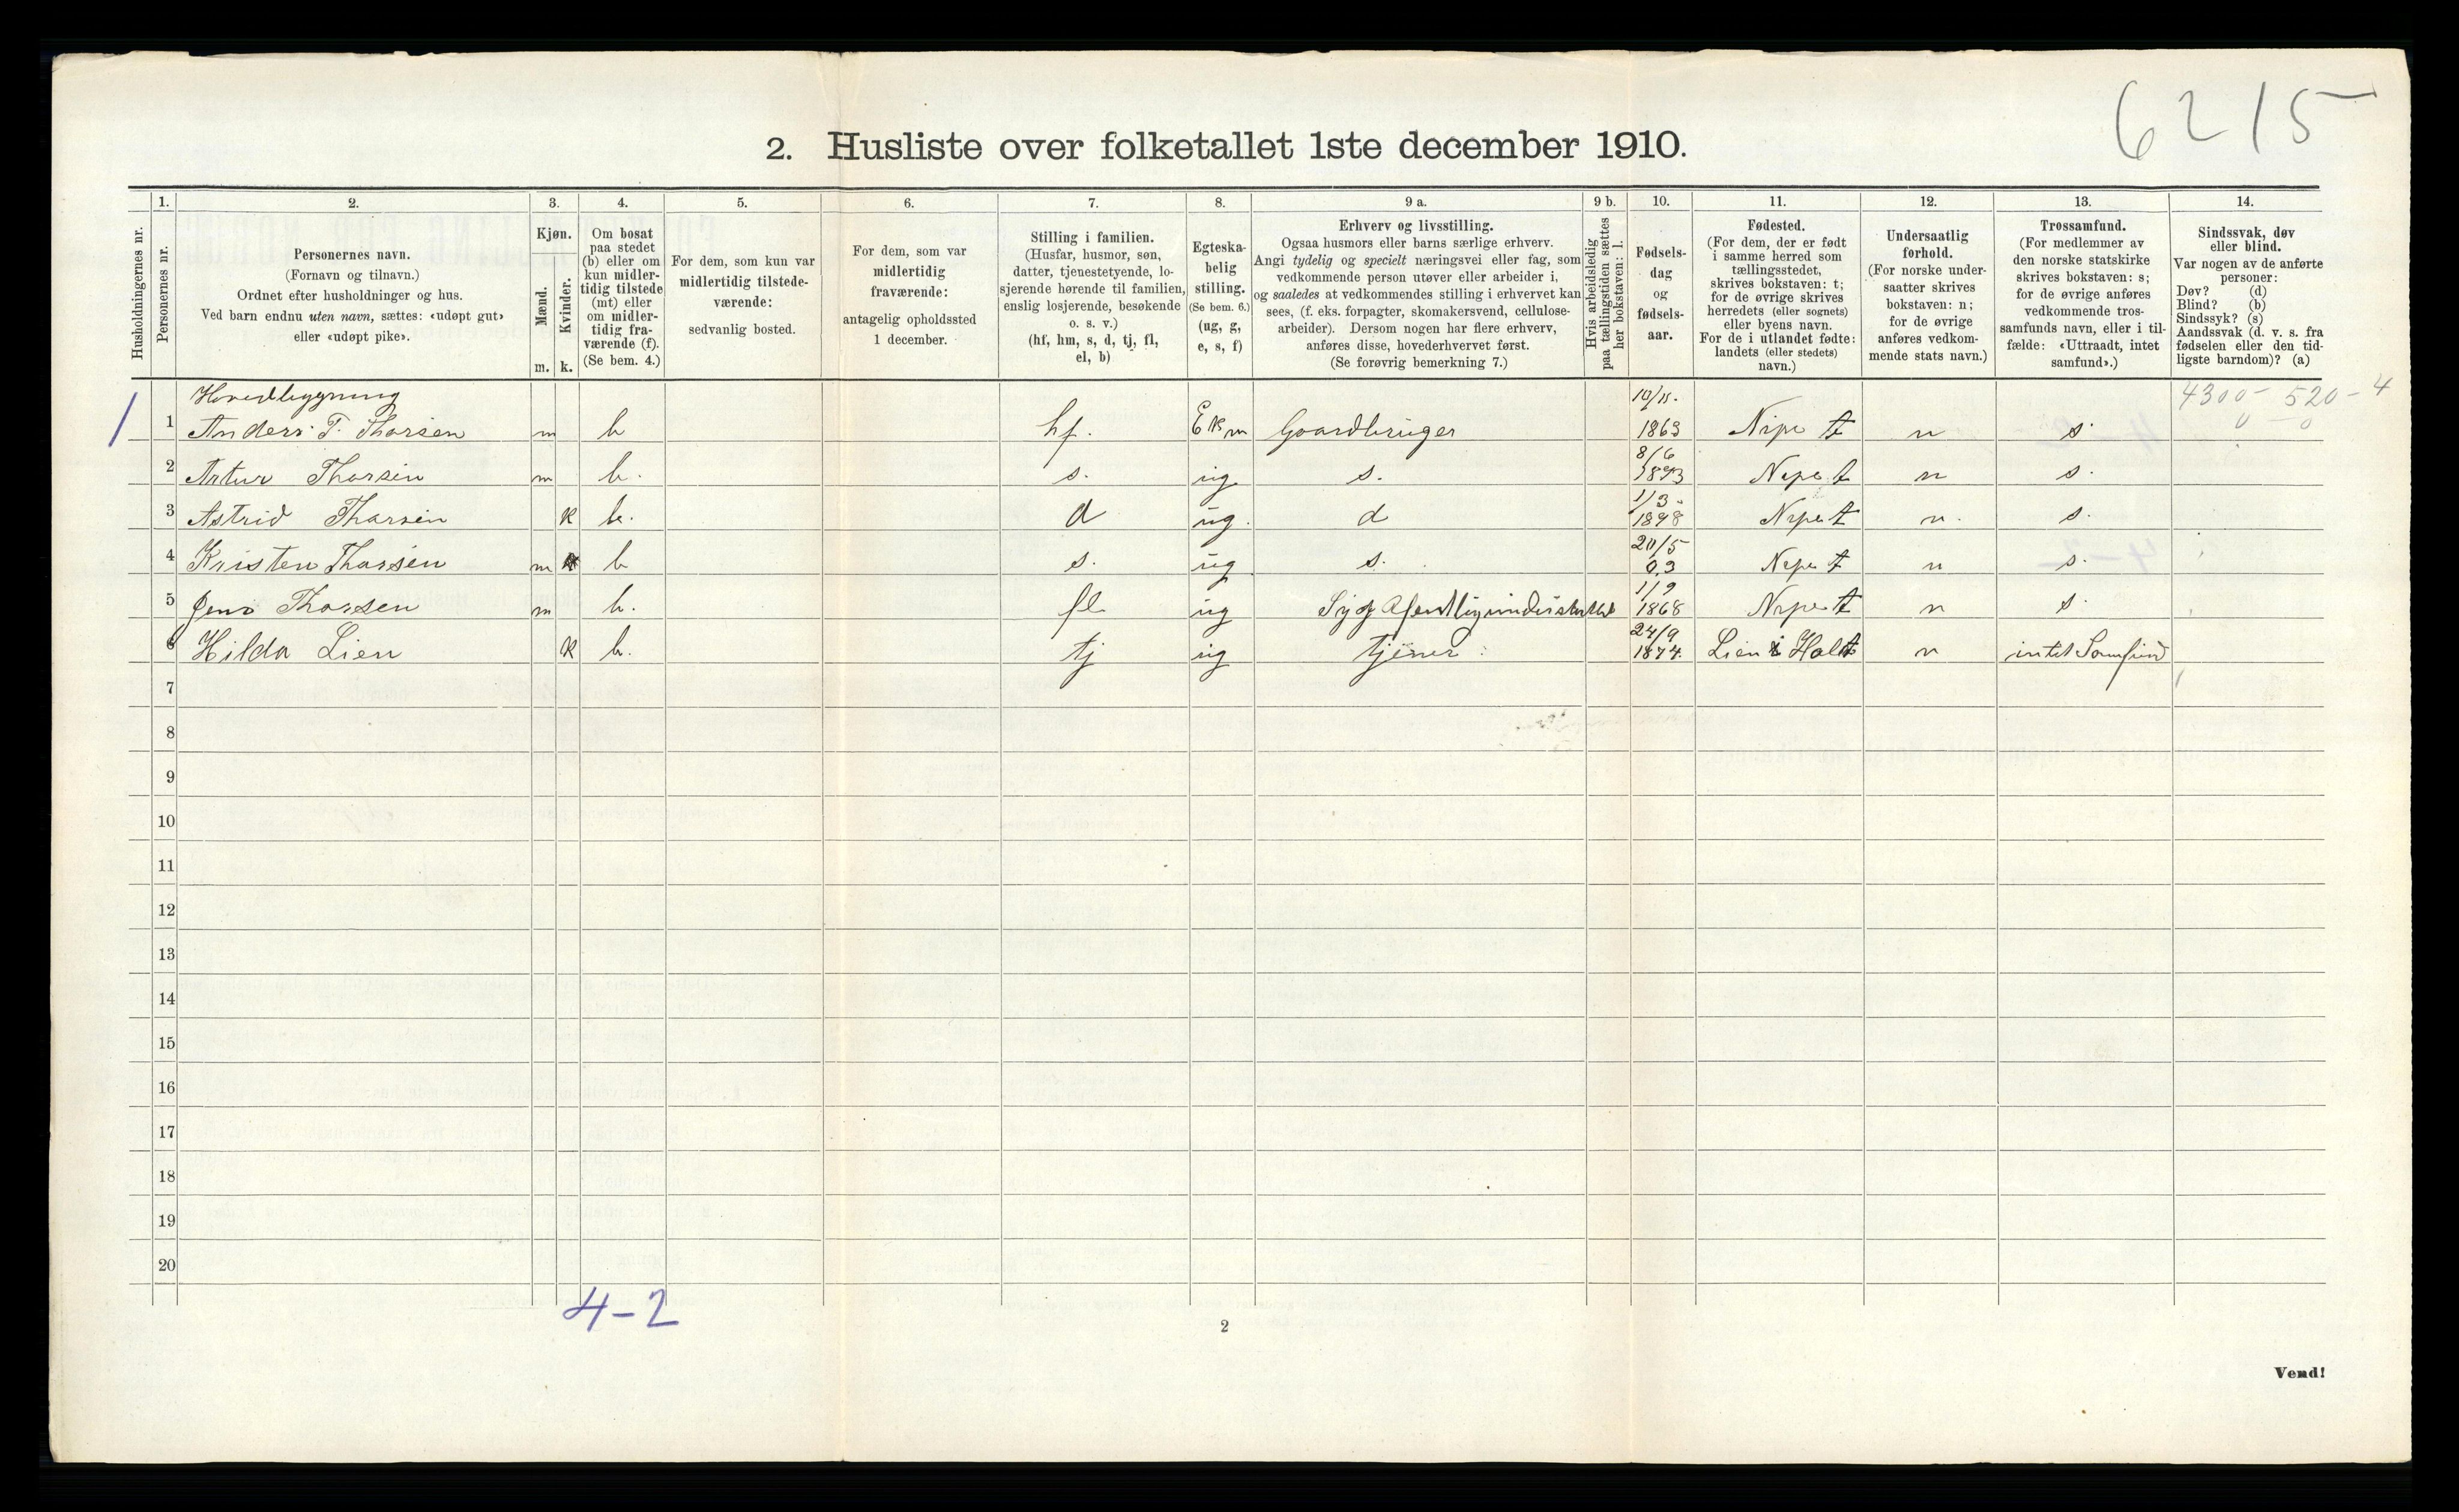 6215
2. Husliste over folketallet 1ste december 1910.
Husholdningernes nr.
1. Personernes nr.
2. Personernes navn.
(Fornavn og tilnavn.)
Ordnet efter husholdninger og hus.
Ved barn endnu uten navn, sættes: «udøpt gut»
eller «udøpt pike».
3. Kjøn.
Mænd. m.
Kvinder. k.
4. Om bosat
paa stedet
(b) eller om
kun midler-
tidig tilstede
(mt) eller
om midler-
tidig fra-
værende (f).
(Se bem. 4.)
5. For dem, som kun var
midlertidig tilstede-
værende:
sedvanlig bosted.
6. For dem, som var
midlertidig
fraværende:
antagelig opholdssted
1 december.
7. Stilling i familien.
(Husfar, husmor, søn,
datter, tjenestetyende, lo-
sjerende hørende til familien,
enslig losjerende, besøkende
o. s. v.)
(hf, hm, s, d, tj, fl,
el, b)
8. Egteska-
belig
stilling.
(Se bem. 6.)
(ug, g,
e, s, f)
9 a. Erhverv og livsstilling.
Ogsaa husmors eller barns særlige erhverv.
Angi tydelig og specielt næringsvei eller fag, som
vedkommende person utøver eller arbeider i,
og saaledes at vedkommendes stilling i erhvervet kan
sees, (f. eks. forpagter, skomakersvend, cellulose-
arbeider). Dersom nogen har flere erhverv,
anføres disse, hovederhvervet først.
(Se forøvrig bemerkning 7.)
9 b. Hvis arbeidsledig
paa tællingstiden sættes
her bokstaven: l.
10. Fødsels-
dag
og
fødsels-
aar.
11. Fødested.
(For dem, der er født
i samme herred som
tællingsstedet,
skrives bokstaven: t;
for de øvrige skrives
herredets (eller sognets)
eller byens navn.
For de i utlandet fødte:
landets (eller stedets)
navn.)
12. Undersaatlig
forhold.
(For norske under-
saatter skrives
bokstaven: n;
for de øvrige
anføres vedkom-
mende stats navn.)
13. Trossamfund.
(For medlemmer av
den norske statskirke
skrives bokstaven: s;
for de øvrige anføres
vedkommende tros-
samfunds navn, eller i til-
fælde: «Uttraadt, intet
samfund».)
14. Sindssvak, døv
eller blind.
Var nogen av de anførte
personer:
Døv? (d)
Blind? (b)
Sindssyk? (s)
Aandssvak (d. v. s. fra
fødselen eller den tid-
ligste barndom)? (a)
Hovedbygning 4300 - 520 - 4
0 0
1 Anders T. Thorsen m b hf. E Gaardbruger 1863 t n s.
2 Artur Thorsen m b. s. ug s. 8/6 1893 t n s.
3 Astrid Thorsen k b. d ug. d 1/3 - 1898 t n. s.
4 Kristen Thorsen m b s. ug s. 20/5 03 t n s.
5 Jens Thorsen m b. fl ug 1/9 1868 t n s
6 Hilda Lien k b. tj ug tjener 24/9 1874. Lien i Holt n intet Samfund
7
8
9
10
11
12
13
14
15
16
17
18
19
20
4-2
2
Vend!